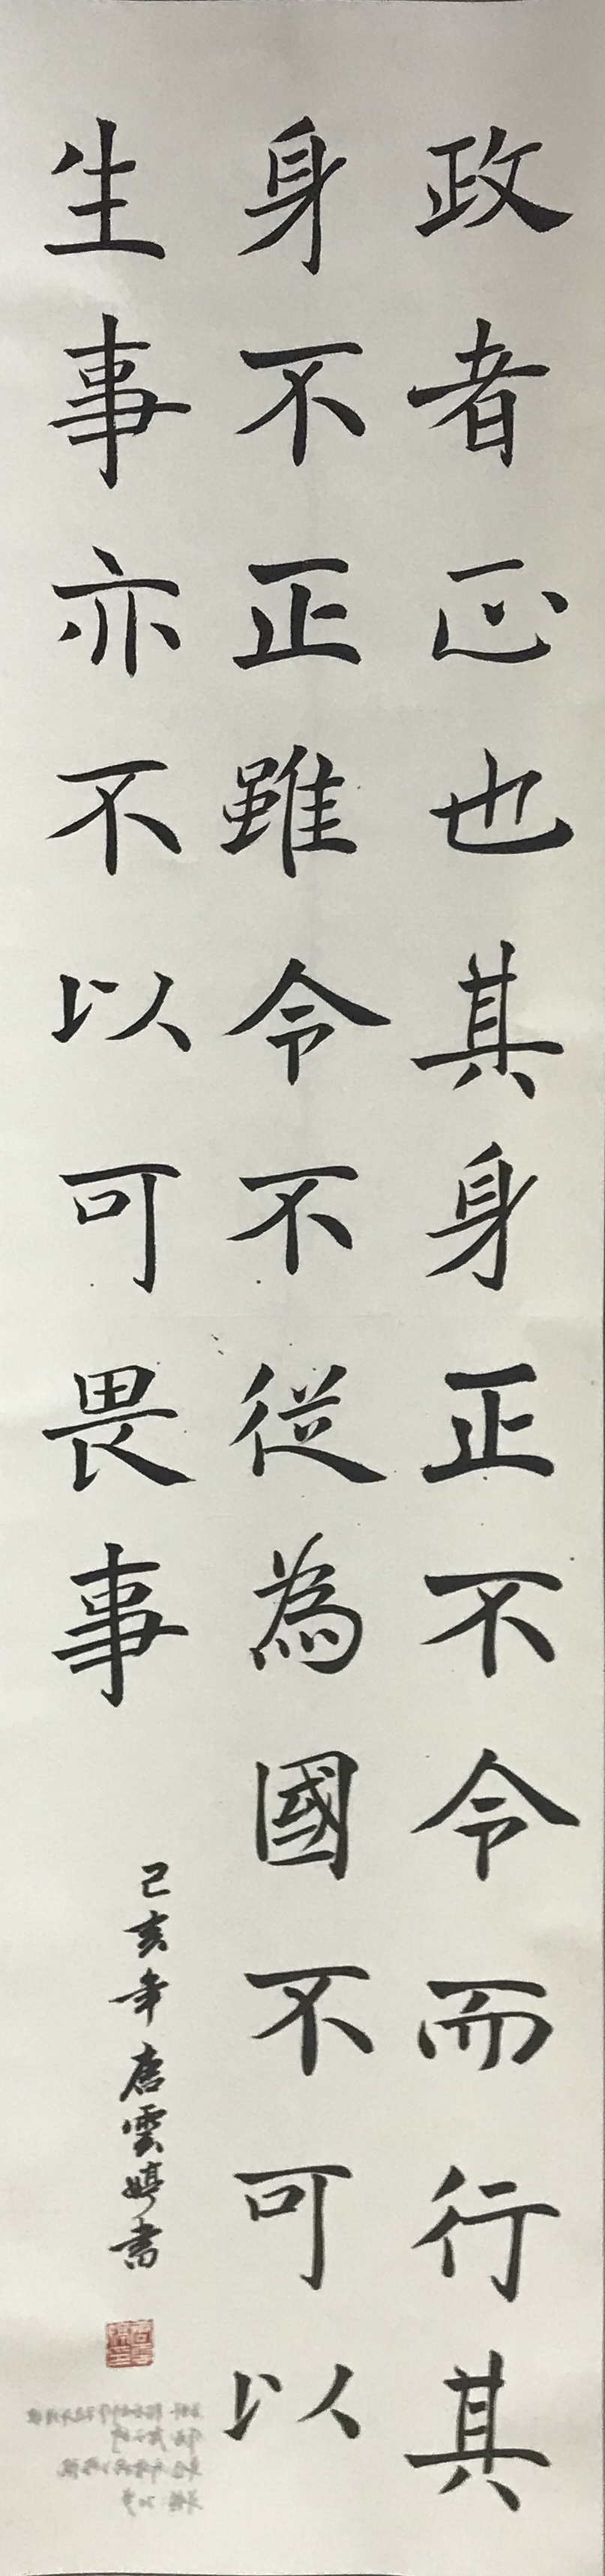 政者正也其身正不令而行其
身不正雖令不從為國不可以
生事亦不以可畏事
己亥年唐雲婷書